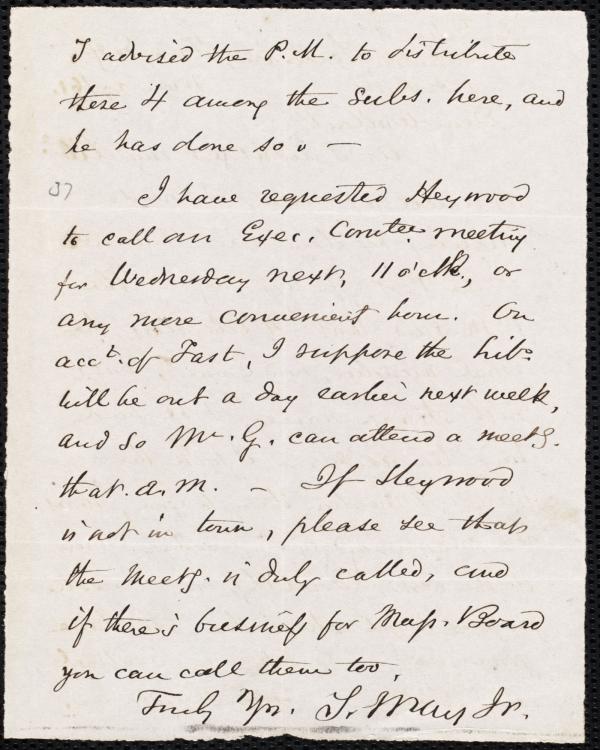 I advised the P.M. to distribute
these 4 among the subs. here, and
he has done so. —
37
I have requested Heywood
to call an Exec. Comtee. meeting
for Wednesday next, 11 o'clk., or
any more convenient hour. On
acct. of Fast, I suppose the Libr.
will be out a day earlier next week,
and so Mr. G. can attend a meetg.
that a.m. — If Heywood
is not in town, please see that
the meetg. is duly called, and
if there's business for Mass. Board
you can call them too.
Truly Yrs. S. May Jr.